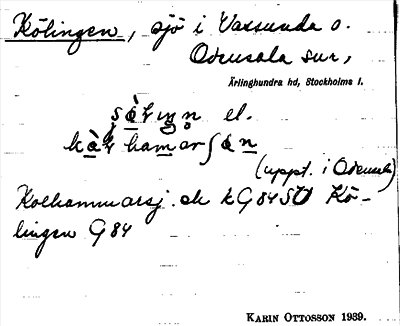 Kölingen, sjö i Vassunda o.
Odensala snr,
Ärlinghundra hd, Stockholms l.
el.
(uppt. i Odensala)
Kolhammarsj. ek kG84SO Kö-
lingen G84
KARIN OTTOSSON 1939.